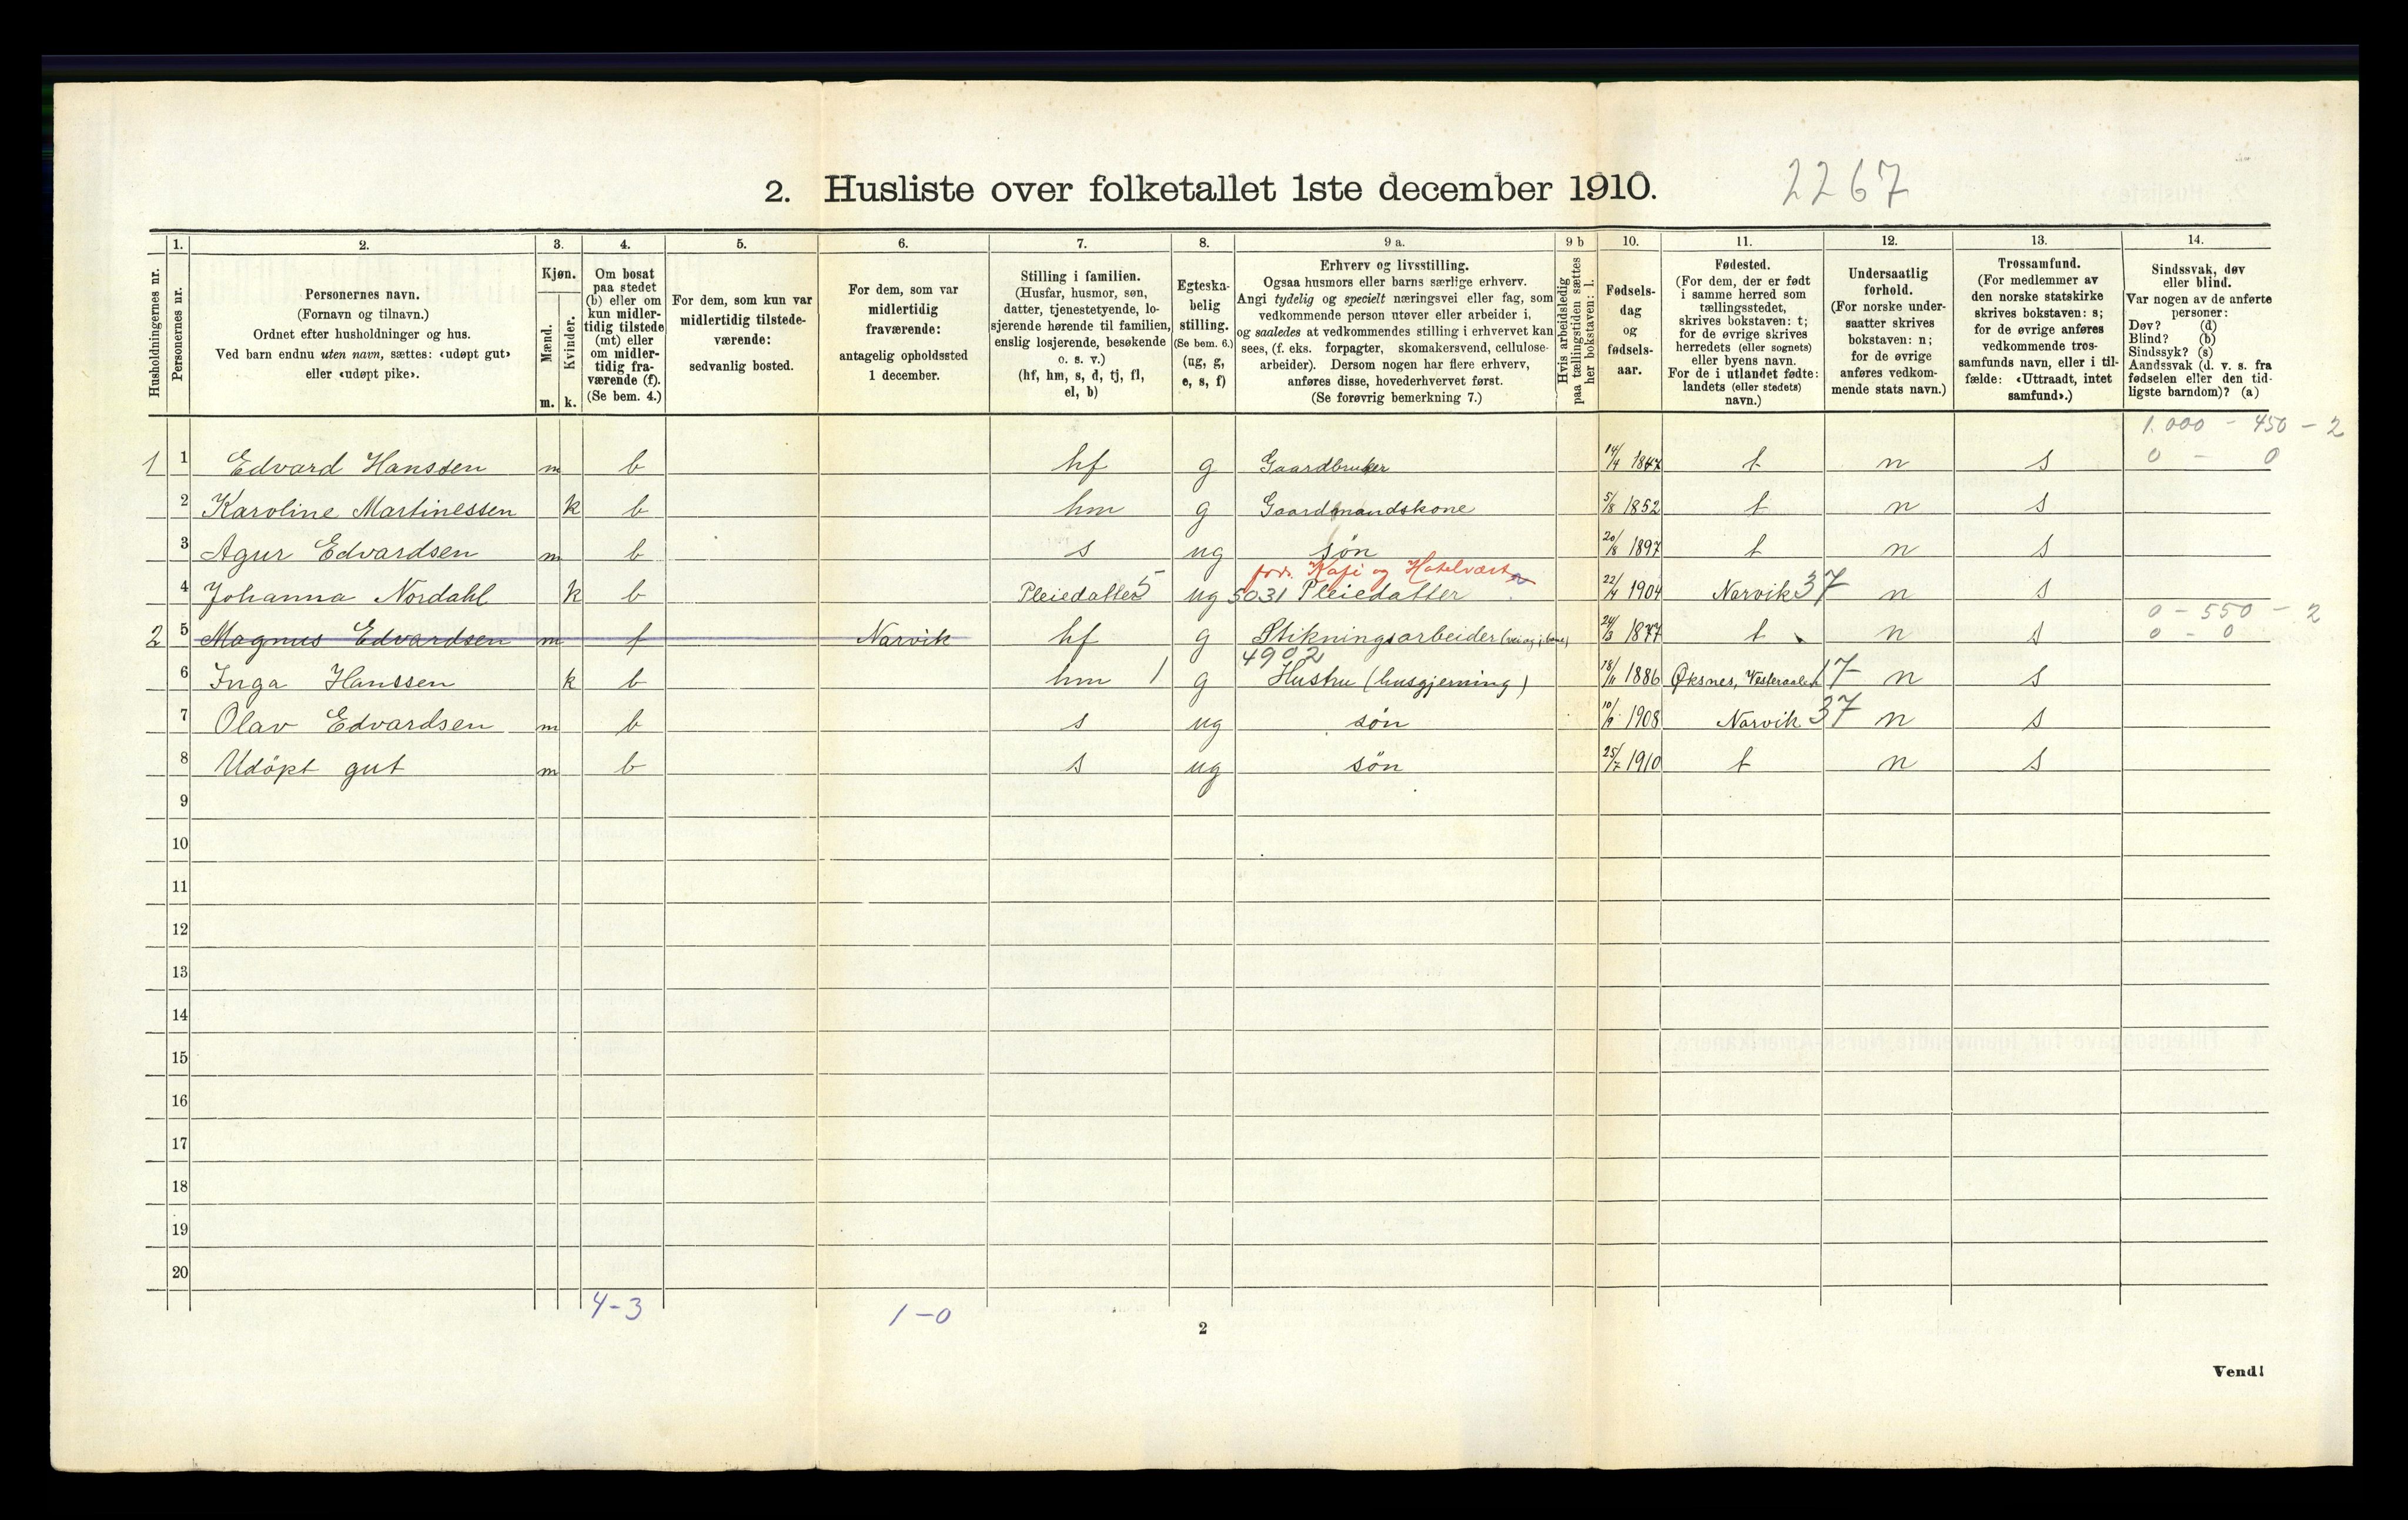 2. Husliste over folketallet 1ste december 1910. 2267
Husholdningernes nr.
1. 2. 3. 4. 5. 6. 7. 8. 9 a. 9 b 10. 11. 12. 13. 14.
Personernes nr.
Personernes navn.
(Fornavn og tilnavn.)
Ordnet efter husholdninger og hus.
Ved barn endnu uten navn, sættes: «udøpt gut»
eller «udøpt pike».
Kjøn.
Mænd.
Kvinder.
m. k.
Om bosat
paa stedet
(b) eller om
kun midler-
tidig tilstede
(mt) eller
om midler-
tidig fra-
værende (f).
(Se bem. 4.)
For dem, som kun var
midlertidig tilstede-
værende:
sedvanlig bosted.
For dem, som var
midlertidig
fraværende:
antagelig opholdssted
1 december.
Stilling i familien.
(Husfar, husmor, søn,
datter, tjenestetyende, lo-
sjerende hørende til familien,
enslig losjerende, besøkende
o. s. v.)
(hf, hm, s, d, tj, fl,
el, b)
Egteska-
belig
stilling.
(Se bem. 6.)
(ug, g,
e, s, f)
Erhverv og livsstilling.
Ogsaa husmors eller barns særlige erhverv.
Angi tydelig og specielt næringsvei eller fag, som
vedkommende person utøver eller arbeider i,
og saaledes at vedkommendes stilling i erhvervet kan
sees, (f. eks. forpagter, skomakersvend, cellulose-
arbeider). Dersom nogen har flere erhverv,
anføres disse, hovederhvervet først.
(Se forøvrig bemerkning 7.)
Hvis arbeidsledig
paa tællingstiden sættes
her bokstaven: l.
Fødsels-
dag
og
fødsels-
aar.
Fødested.
(For dem, der er født
i samme herred som
tællingsstedet,
skrives bokstaven: t;
for de øvrige skrives
herredets (eller sognets)
eller byens navn.
For de i utlandet fødte:
landets (eller stedets)
navn.)
Undersaatlig
forhold.
(For norske under-
saatter skrives
bokstaven: n;
for de øvrige
anføres vedkom-
mende stats navn.)
Trossamfund.
(For medlemmer av
den norske statskirke
skrives bokstaven: s;
for de øvrige anføres
vedkommende tros-
samfunds navn, eller i til-
fælde: «Uttraadt, intet
samfund».)
Sindssvak, døv
eller blind.
Var nogen av de anførte
personer:
Døv? (d)
Blind? (b)
Sindssyk? (s)
Aandssvak (d. v. s. fra
fødselen eller den tid-
ligste barndom)? (a)
1.000 - 450 - 2
1 1 Edvard Hanssen m b hf g Gaardbruker 14/4 1847 t n s 0 - 0
2 Karoline Martinessen k b hm g Gaardmandskone 5/8 1852 t n s
3 Agur Edvardsen m b s ug søn 20/8 1897 t n s
fors. Kafé og Hotelvært
4 Johanna Nordahl k b Pleiedatter 5 ug 5031 Pleiedatter 22/4 1904 Narvik 37 n s
0 - 550 - 2
2 5 Magnus Edvardsen m f Narvik hf g Stikningsarbeider 24/3 1877 t n s 0 - 0
4902
6 Inga Hanssen k b hm 1 g Hustru (husgjerning) 18/11 1886 Øksnes, Vesteraalen 17 n s
7 Olav Edvardsen m b s ug søn 10/9 1908 Narvik 37 n s
8 Udöpt gut m b s ug søn 25/7 1910 t n s
9
10
11
12
13
14
15
16
17
18
19
20
4-3 1-0
2
Vend!